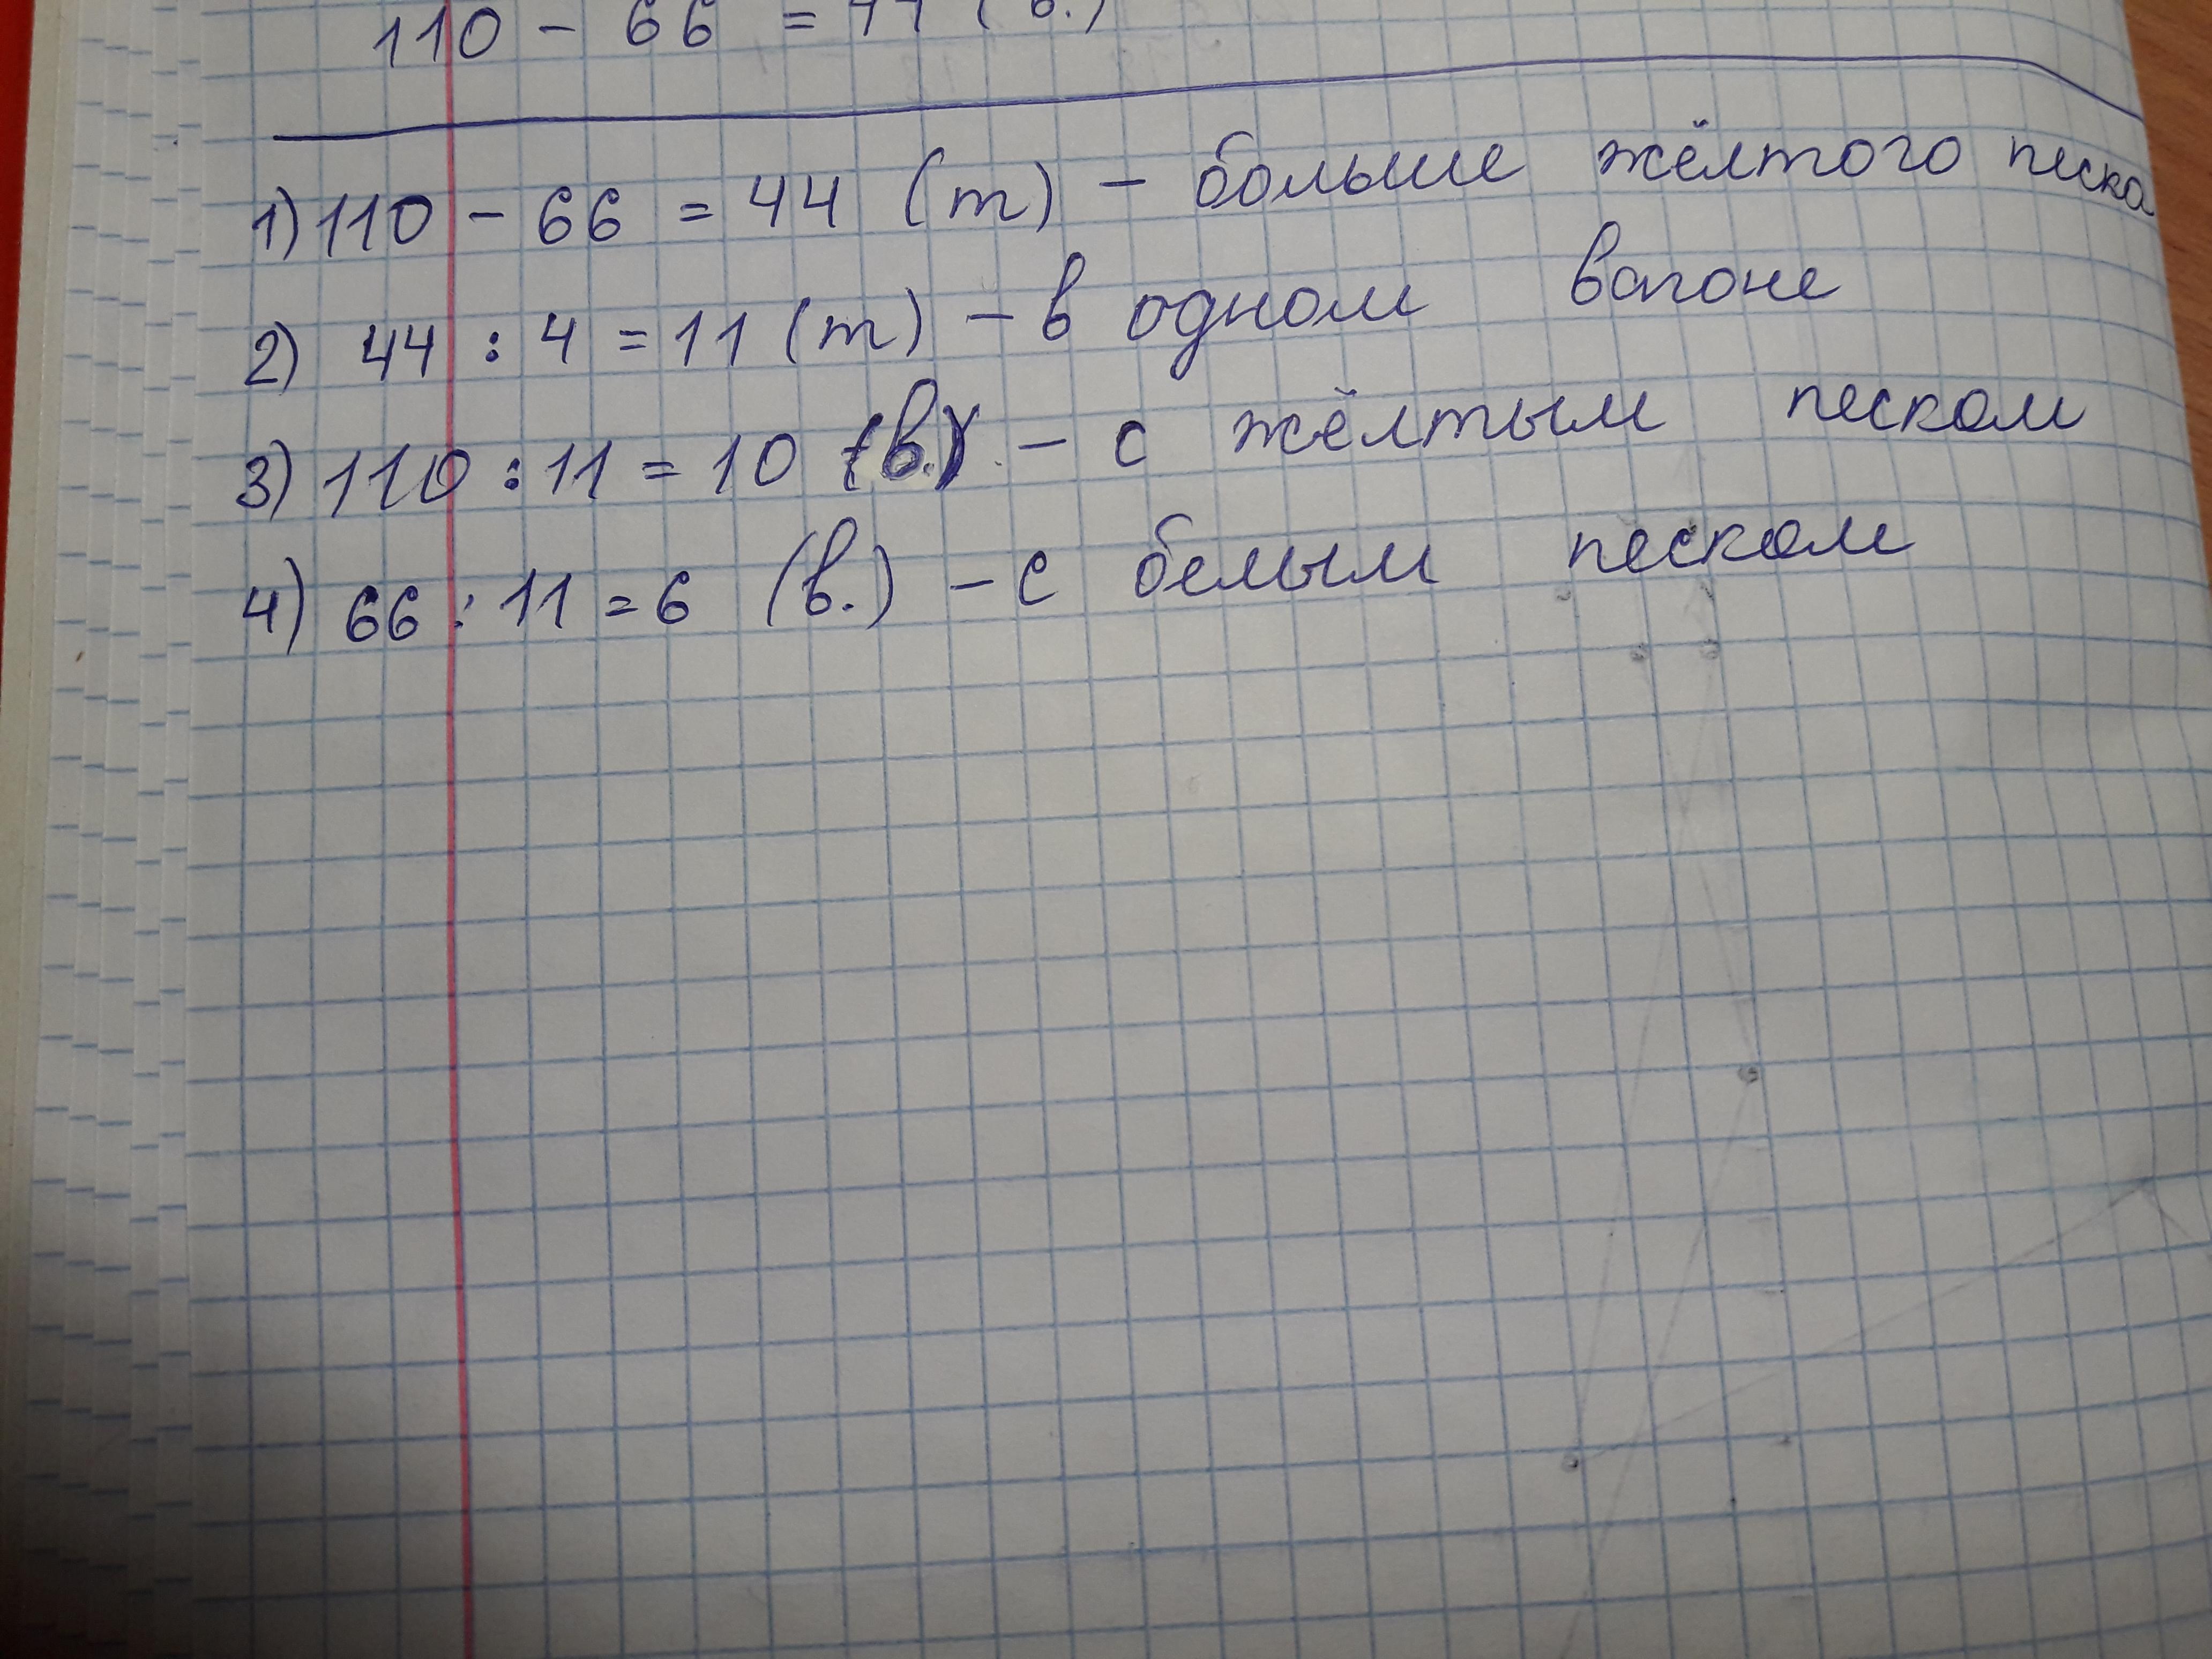 110 - 66 = 44 (в.)
1) 110 - 66 = 44 (т) - больше жёлтого песка
2) 44 : 4 = 11 (т) - в одном вагоне
3) 110 : 11 = 10 (в.) - с жёлтым песком
4) 66 : 11 = 6 (в.) - с белым песком